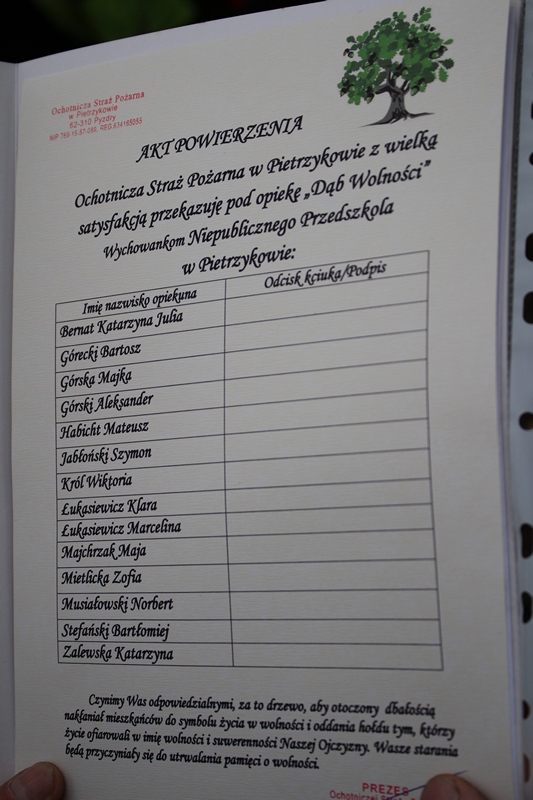 Ochotnicza Straż Pożarna
w Pietrzykowie
62-310 Pyzdry
AKT POWIERZENIA
Ochotnicza Straż Pożarna w Pietrzykowie z wielką
satysfakcją przekazuję pod opiekę „Dąb Wolności”
Wychowankom Niepublicznego Przedszkola
w Pietrzykowie:
Imię nazwisko opiekuna
Odcisk kciuka/Podpis
Bernat Katarzyna Julia
Górecki Bartosz
Górska Majka
Górski Aleksander
Habicht Mateusz
Jabłoński Szymon
Król Wiktoria
Łukasiewicz Klara
Łukasiewicz Marcelina
Majchrzak Maja
Mietlicka Zofia
Musiałowski Norbert
Stefański Bartłomiej
Zalewska Katarzyna
Czynimy Was odpowiedzialnymi, za to drzewo, aby otoczony dbałością
nakłaniał mieszkańców do symbolu życia w wolności i oddania hołdu tym, którzy
życie ofiarowali w imię wolności i suwerenności Naszej Ojczyzny. Wasze starania
będą przyczyniały się do utrwalania pamięci o wolności.
PREZES
Ochotniczej